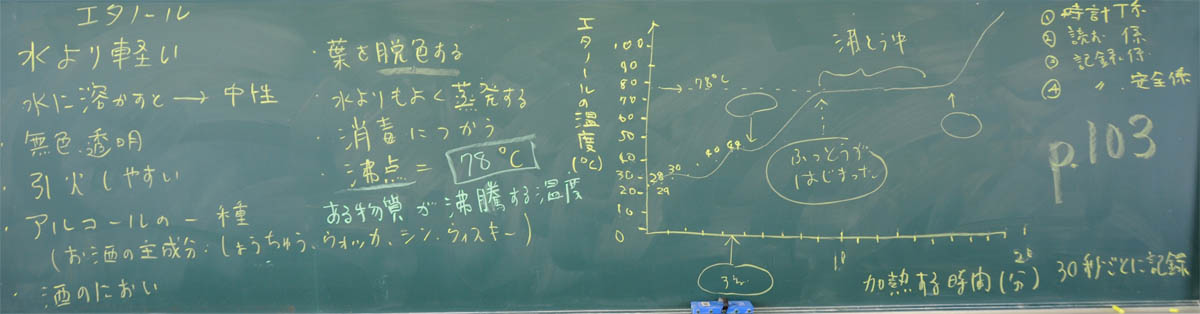 エタノール
水より軽い
水に溶かすと→中性
・無色透明
・引火しやすい
・アルコールの一種
(お酒の主成分:しょうちゅう、ウォッカ、ジン、ウィスキー)
・酒のにおい
・葉を脱色する
・水よりもよく蒸発する
・消毒につかう
・沸点= 78℃
ある物質が沸騰する温度
エタノールの温度(℃)
100
90
80
70
60
50
40
30
20
10
0
78℃
28 30 40 44
29
沸とう中
ふっとうが
はじまった
10
20
加熱する時間(分) 30秒ごとに記録
① 時計係
② 読む係
③ 記録係
④ 〃 安全係
p.103